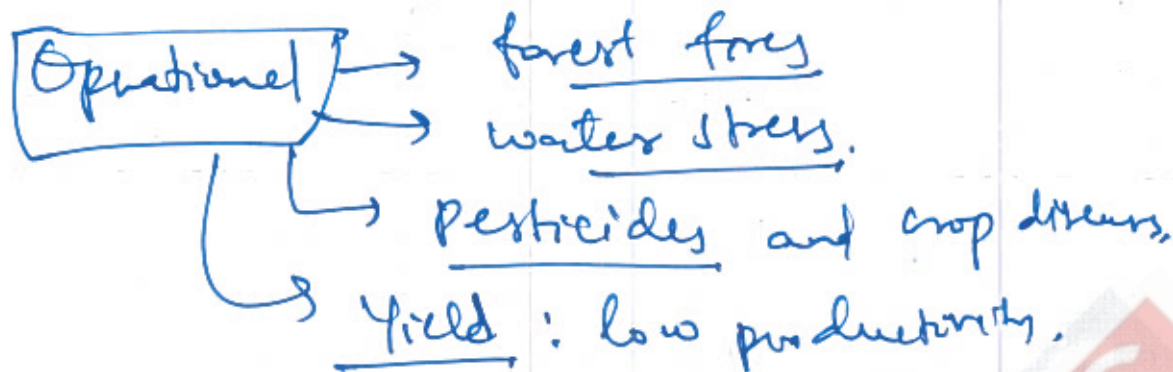 Operational → forest fires
→ water stress.
→ pesticides and crop diseases.
→ Yield : low productivity.